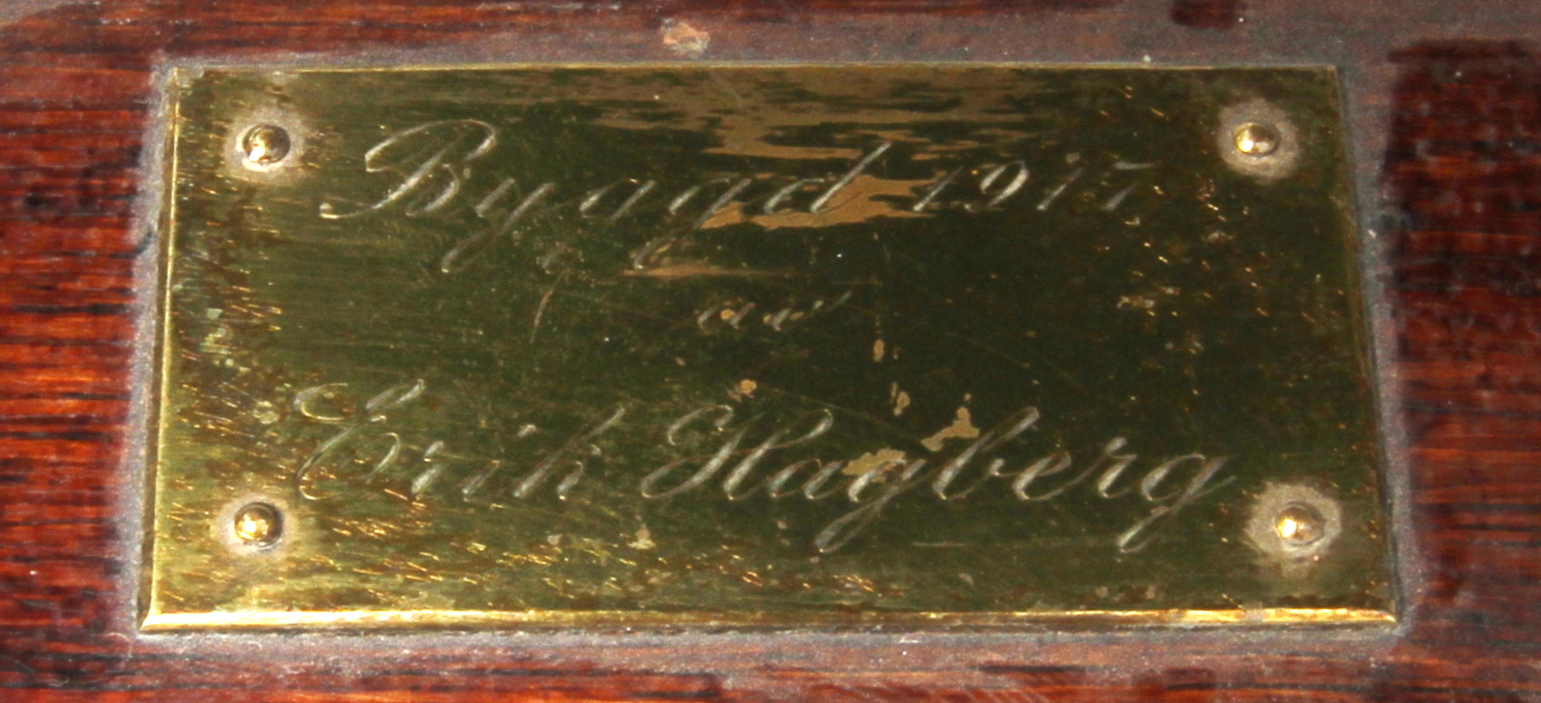 Byggd 1917
av
Erik Hagberg